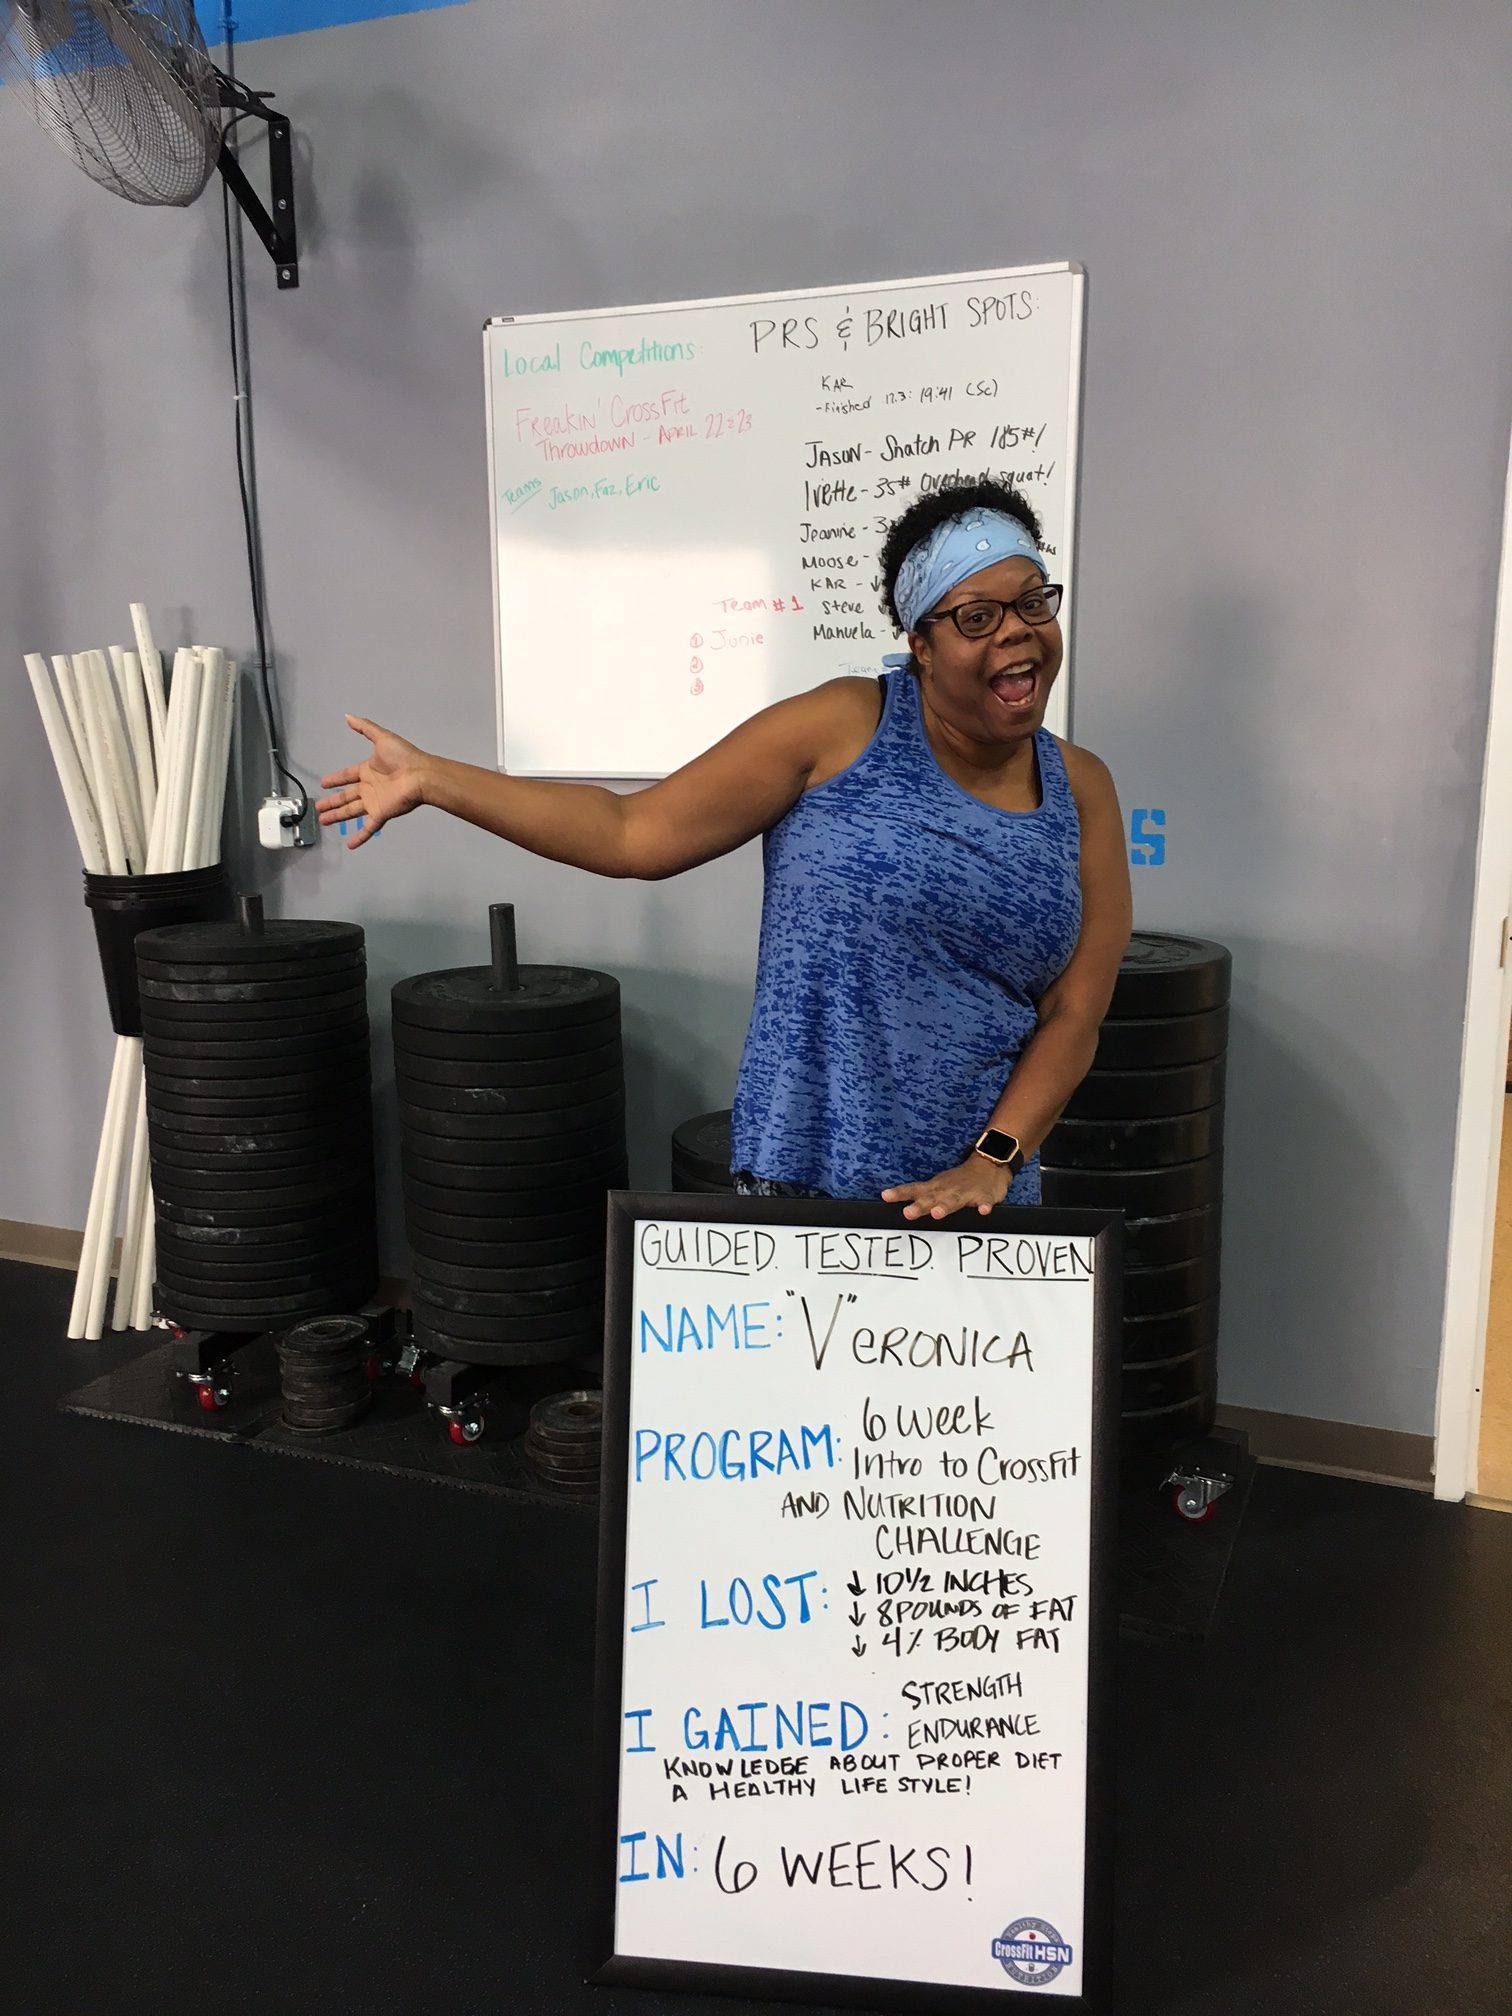 Local Competitions:
Freakin' CrossFit
Throwdown - April 22 & 23
Teams Jason, Faz, Eric
Team #1
① Junie
②
③
PRS & BRIGHT SPOTS:
KAR
- Finished 17.3: 19:41 (Sc)
JASON- Snatch PR 185#!
Ivette- 35# Overhead squat!
Jeanine - 3
Moose -
KAR - ↓
Steve ↓
Manuela - ↓
Team
S
GUIDED. TESTED. PROVEN
NAME: "V"ERONICA
PROGRAM: 6 week
Intro to CrossFit
AND NUTRITION
CHALLENGE
I LOST: ↓ 10 1/2 INCHES
↓ 8 POUNDS OF FAT
↓ 4% BODY FAT
I GAINED: STRENGTH
ENDURANCE
KNOWLEDGE ABOUT PROPER DIET
A HEALTHY LIFE STYLE!
IN: 6 WEEKS!
Healthy Steps
CrossFit HSN
NUTRITION